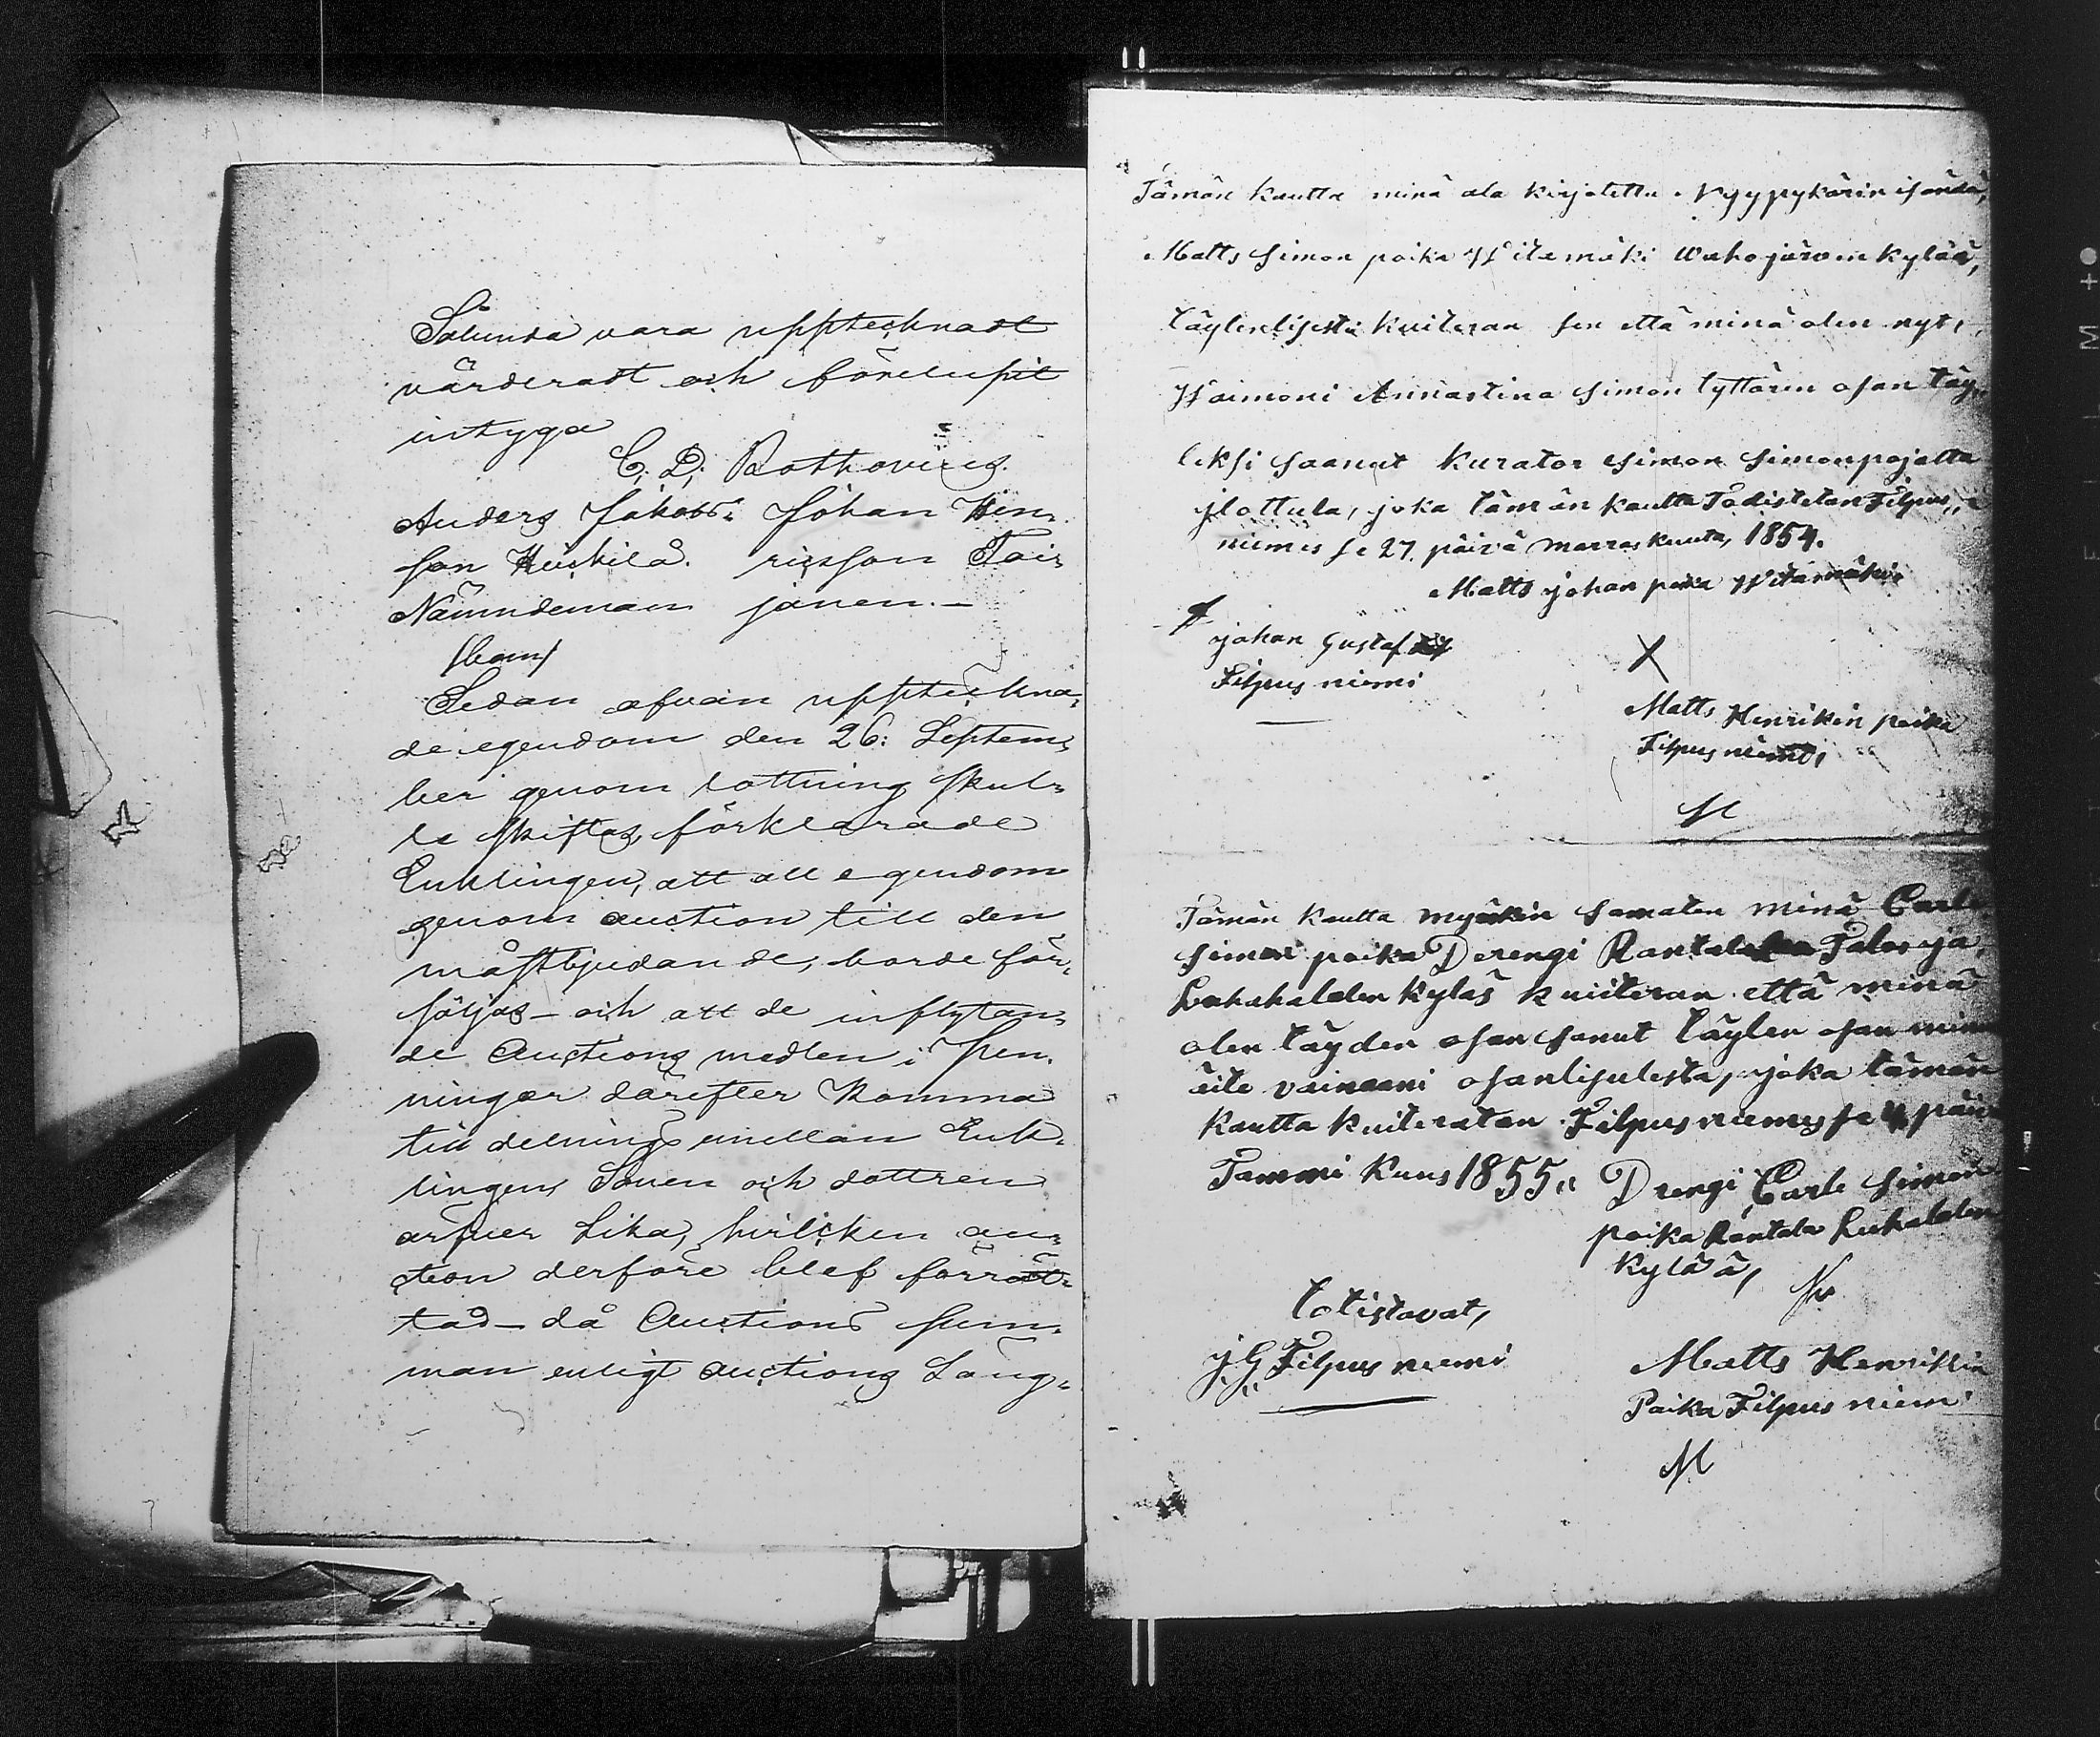 Sålunda vara upptecknadt
värderadt och förelupit
intyga
C. D. Rothovius.
Anders Jakobs- Johan Hen-
son Heickilä. ricsson Toi-
Nämndeman janen.
Sedan ofvan uppteckna-
de egendom den 26: Septem-
ber genom lottning skul-
le skiftas, förklarade
Enklingen, att all egendom
genom auction till den
mästbjudande, borde för-
säljas - och att de inflytan-
de Auctions medlen i pen-
ningar därefter komma
till delning emellan Enk-
lingen Sonen och dottren
arfver Lika, hvilcken auc-
tion derföre blef förrät-
tad - då Auctions sum-
man enligt auctions Läng-
Tämän kautta minä ala kirjotettu Nyypykärin isändä,
Matts Simon poika Witamäki Wahojärven kylää,
täylenlisesti kuiteran sen että minä olen nyt,
Waimoni Annastina Simon tyttären osan täy,,
leksi saanut kurator Simon Simonpojalta
jlottula, joka tämän kautta Todistetan Filpus,,
niemes se 27. päivä marras kuuta, 1854.
Matts johan poika Witamäki
johan Gustaf
Filpus niemi
X
Matts Henrikin poika
Filpus niemi,
M
Tämän kautta myöskin samaten minä Carle
Simon poika Drengi Rantala Talos ja
Luhalalden kyläs kuiteran että minä
olen täyden osan sanut täylen osan minu
äite vainaani osanlisulesta, joka tämän
kautta kuiteratan Filpus niemes se 4 päiv
Tammi Kuus 1855,, Drengi Carle Simon
poika Rantala Luhalalden
kylää,
totistavat,
J. G. Filpus niemi
Matts Henrikin
Poika Filpus niemi
M